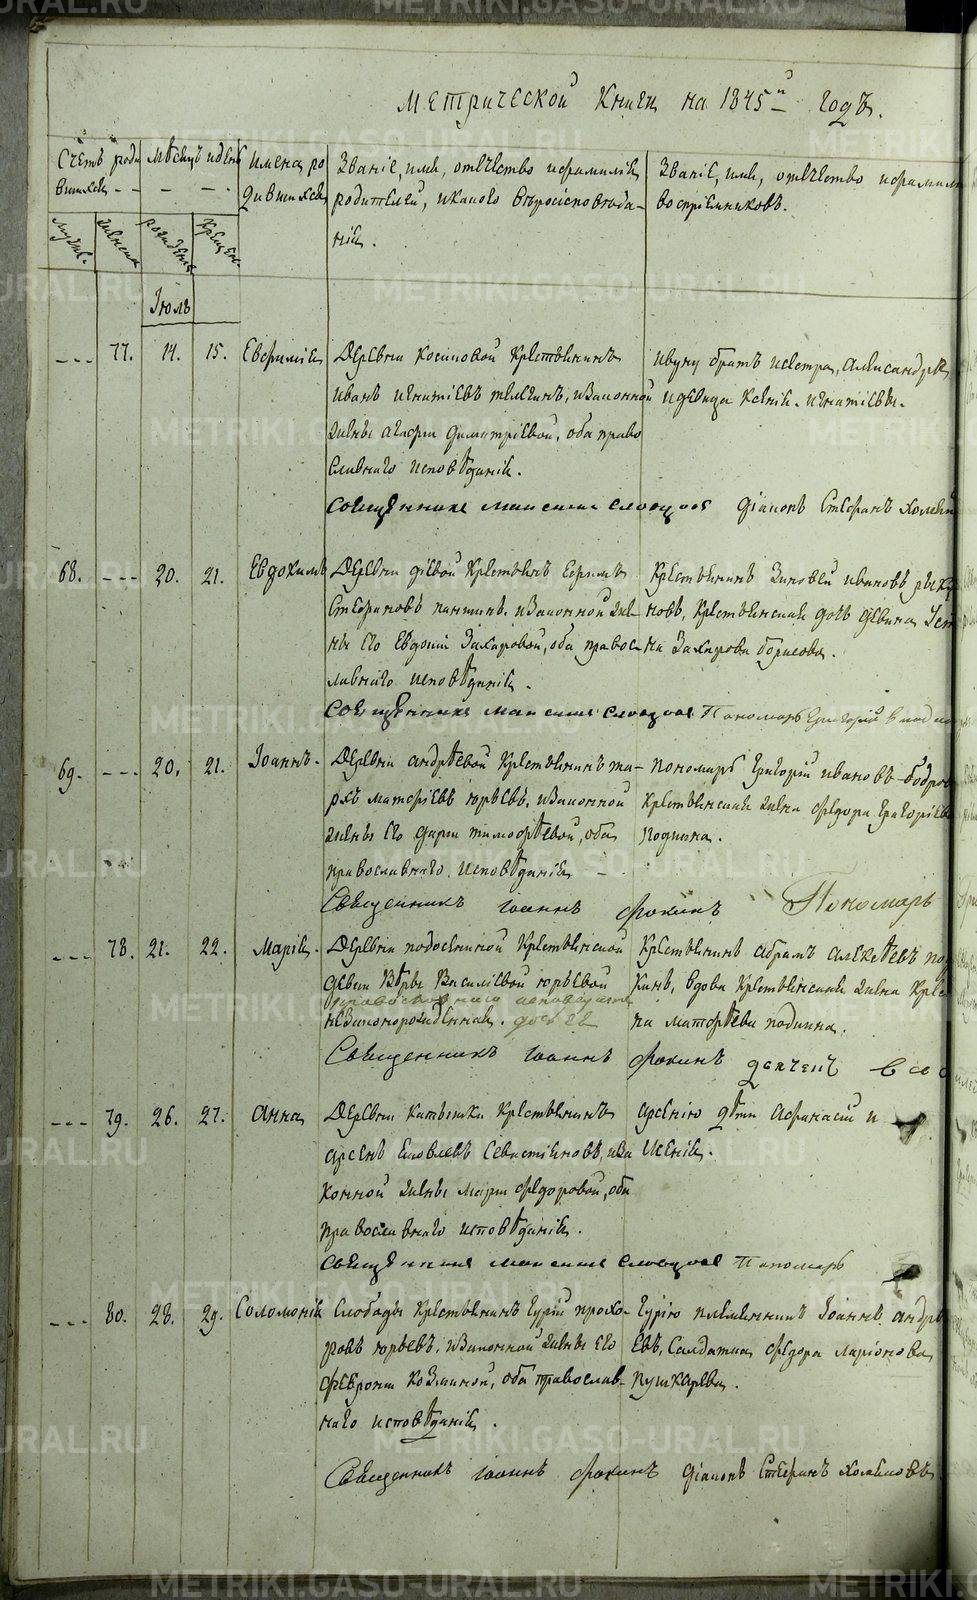 Метрической Книги на 1845й годъ.
Счетъ роди
вшихся - -
Мѣсяцъ и день
Имена ро
дившихся
Званіе, имя, отчество и фамилія
родителей, и какого вѣроисповѣда-
нія.
Званіе, имя, отчество и фамилія
воспріемниковъ.
мужес.
женска
рожденія
крещен.
Іюль
--- 77. 14. 15. Евфимія
Деревни Косиковой Крестьянинъ
Иванъ Игнатіевъ, изаконной
жены Агафіи Димитріевой, оба право
славнаго исповѣданія.
Ивану братъ исестра, Александръ
идевица Ксенія. Игнатіевы.
Священникъ Максимъ Словцовъ Діаконъ Стефанъ
68. --- 20. 21. Евдокимъ
Деревни Діевой Крестьянинъ Ефимъ
Стефановъ Пантинъ, изаконной же-
ны его Евдокіи Захаровой, оба правос-
лавнаго исповѣданія.
Крестьянинъ Зиновей Ивановъ
новъ, Крестьянская дочь девица Усти
на Захарова Борисова.
Священникъ Максимъ Словцовъ Пономарь Григорій
69. --- 20. 21. Іоаннъ.
Деревни Андрѣевой Крестьянинъ Ма-
ркъ Матфіевъ Юрьевъ, изаконной
жены его Дарьи Тимофѣевой, оба
православнаго исповѣданія -
Пономарь Григорій Ивановъ Бодров
Крестьянская жена Федора Григоріева
Подкина.
Священникъ Іоаннъ Фокинъ Пономарь
--- 78. 21. 22. Марія.
Деревни Подосениной Крестьянской
девки Вѣры Василіевой Юрьевой
православнаго исповеданія
незаконорожденная. дочь ея
Крестьянинъ Абрамъ Алексѣевъ под
кинъ, вдова Крестьянская жена
на Матфѣева Подкина.
Священникъ Іоаннъ Фокинъ дьячекъ
--- 79. 26. 27. Анна
Деревни Катышки Крестьянинъ
Арсенъ Яковлевъ Севастіяновъ, иза
конной жены Маріи Федоровой, оба
православнаго исповѣданія.
Арсенію дѣти Афанасій и
Ксенія.
Священникъ Максимъ Словцовъ Пономарь
--- 80. 28. 29. Соломонія
Слободы Крестьянинъ Гурій Прохо-
ровъ Юрьевъ, изаконной жены его
Февроніи Козминой, оба православ-
наго исповѣданія.
Гурію племянникъ Іоаннъ Андре
евъ, Солдатка Федора Ларіонова
Пушкарева.
Священникъ Іоаннъ Фокинъ Діаконъ Стефанъ Хомяковъ
METRIKI.GASO-URAL.RU